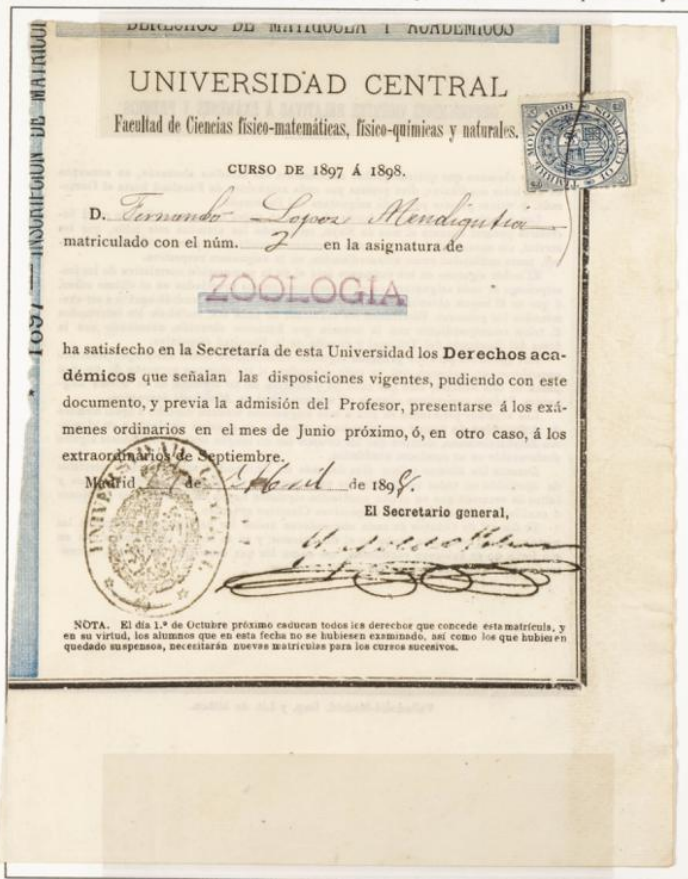 DERECHOS DE MATRICULA Y ACADEMICOS
1897 — INSCRIPCION DE MATRICUL
UNIVERSIDAD CENTRAL
Facultad de Ciencias físico-matemáticas, físico-químicas y naturales.
TIMBRE MOVIL 1898
10 CENT
CURSO DE 1897 Á 1898.
D. Fernando Lopez Mendigutia
matriculado con el núm. 2 en la asignatura de
ZOOLOGÍA
ha satisfecho en la Secretaría de esta Universidad los Derechos aca-
démicos que señalan las disposiciones vigentes, pudiendo con este
documento, y previa la admisión del Profesor, presentarse á los exá-
menes ordinarios en el mes de Junio próximo, ó, en otro caso, á los
extraordinarios de Septiembre.
Madrid de Abril de 1898.
El Secretario general,
UNIVERSIDAD
NOTA. El día 1.º de Octubre próximo caducan todos los derechos que concede esta matrícula, y
en su virtud, los alumnos que en esta fecha no se hubiesen examinado, así como los que hubiesen
quedado suspensos, necesitarán nuevas matrículas para los cursos sucesivos.